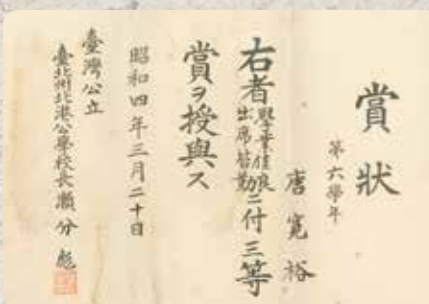 賞狀
第六學年
唐寬裕
右者學業佳良出席皆勤ニ付三等
賞ヲ授與ス
昭和四年三月二十日
臺灣公立
臺北州北港公學校長瀨分彪